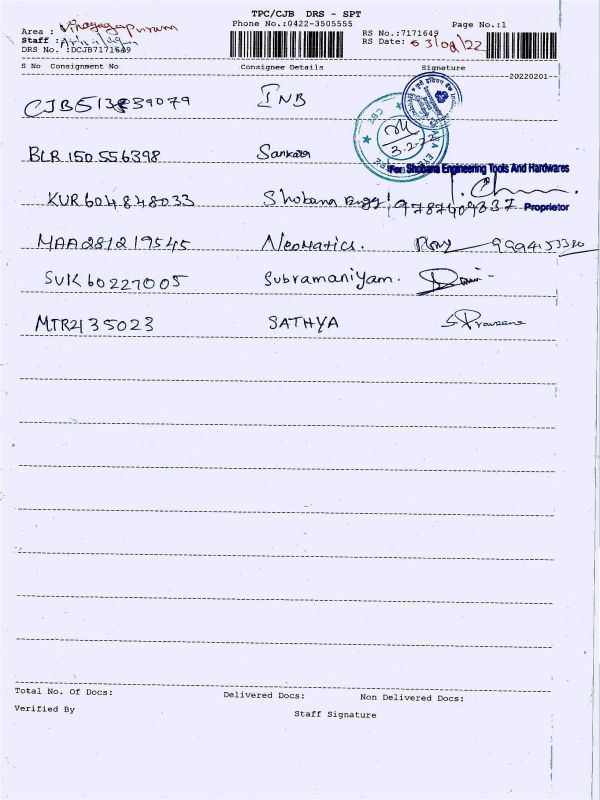 TPC/CJB DRS - SPT
Phone No.:0422-3505555
Page No.:1
Area : Vinayagapuram
Staff :
RS No.:7171649
DRS No. :DCJB7171649
RS Date: 03/02/22
S No Consignment No Consignee Details Signature
--20220201--
CJB513839079 INB
3.2.22
BLR 150 556398 Sankara
For Shobana Engineering Tools And Hardwares
KUR604848033 Shobana Engg 9787409837 Proprietor
MAA281219545 Neomatics. 9994153330
SVK60227005 Subramaniyam.
MTR2135023 SATHYA S. Praveena
Total No. Of Docs: Delivered Docs: Non Delivered Docs:
Verified By Staff Signature